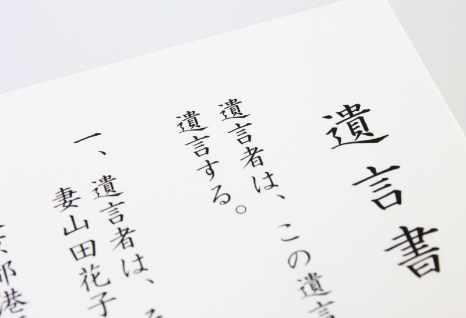 遺言書
遺言者は、この遺言
遺言する。
一、遺言者は、そ
妻山田花子
都港